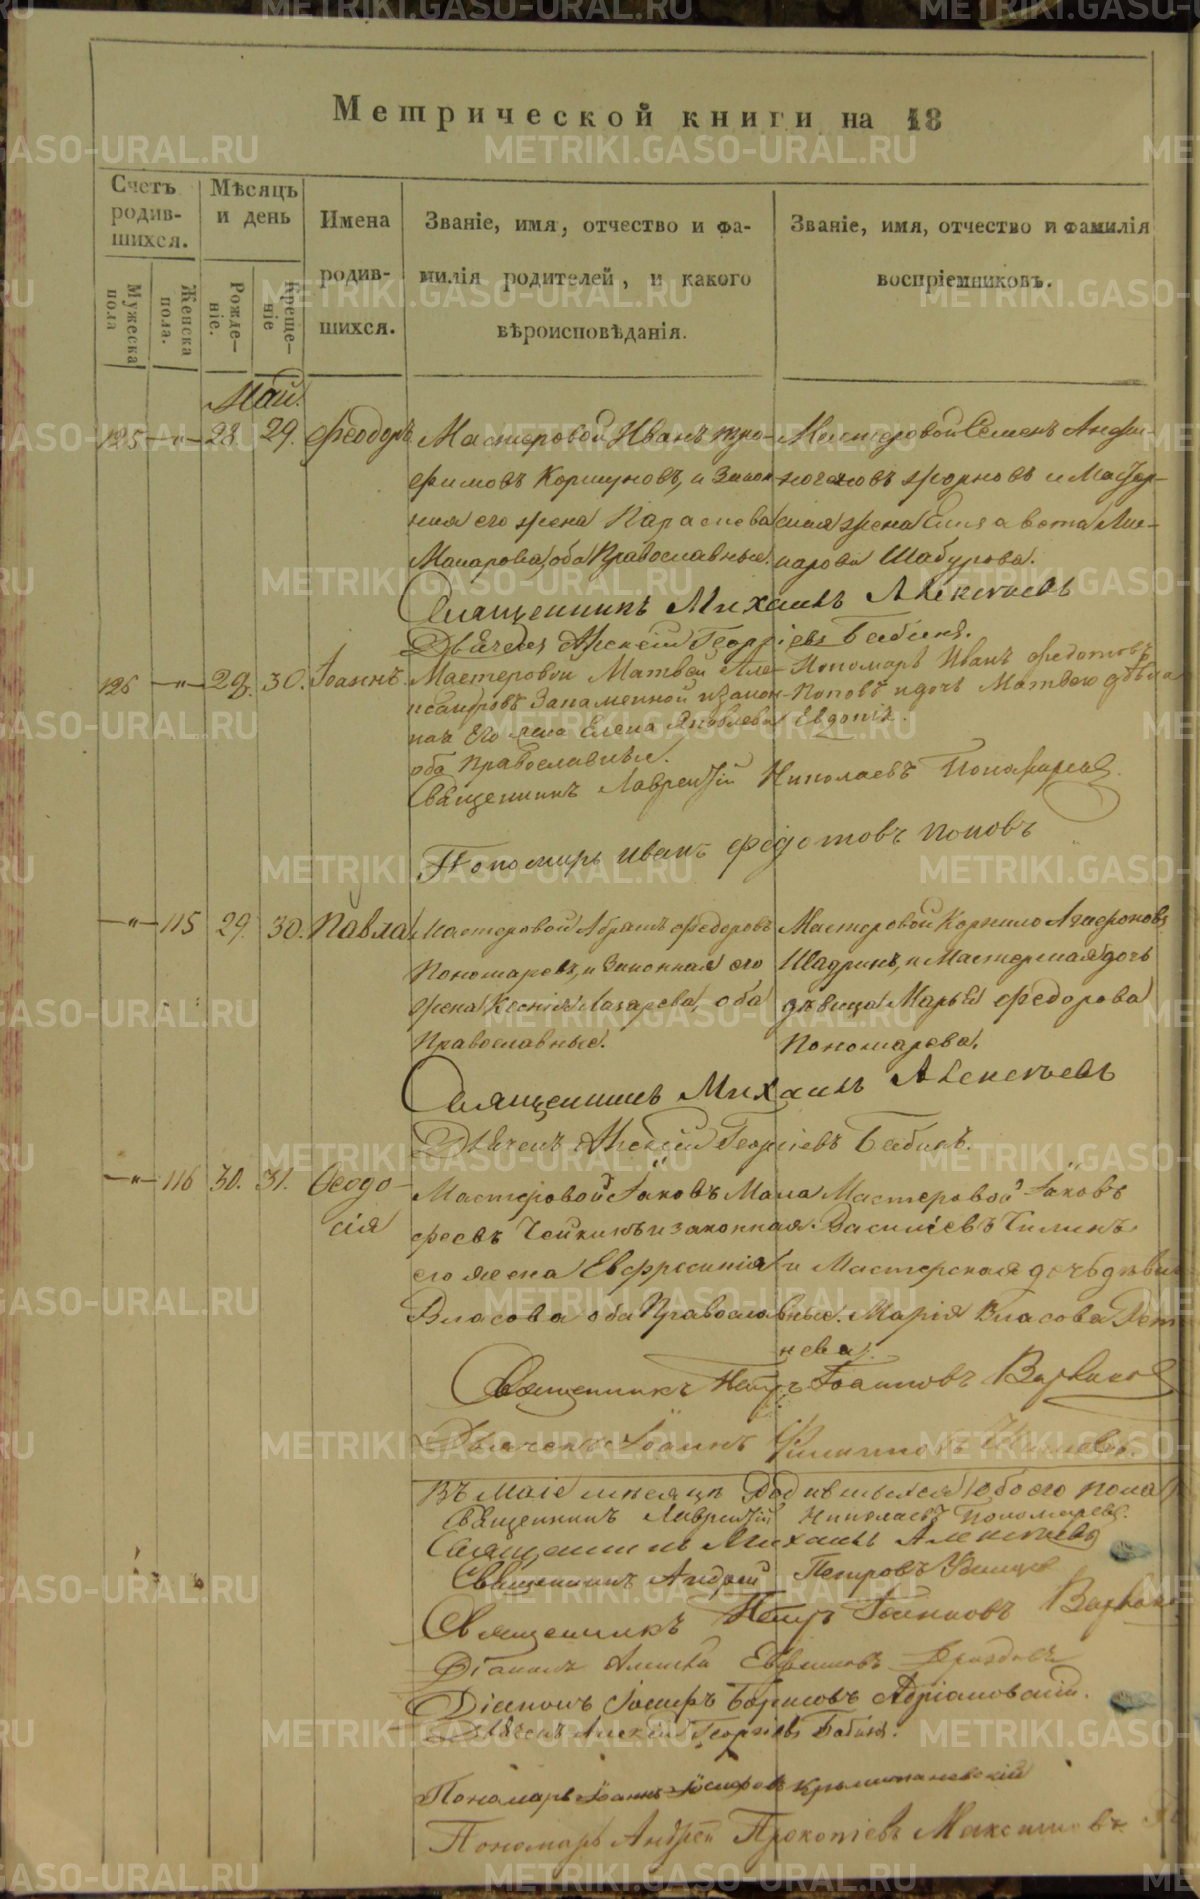 Метрической книги на 18
Счетъ родившихся.
Мѣсяцъ и день
Имена родившихся.
Званіе, имя, отчество и фамилія родителей, и какого вѣроисповѣданія.
Званіе, имя, отчество и фамилія воспріемниковъ.
Мужеска пола
Женска пола.
Рожденіе.
Крещеніе
Маій.
125 —"— 28. 29. Феодоръ
Мастеровой Иванъ Тро-
фимовъ Коршуновъ, и закон-
ная его жена Параскева
Макарова, оба Православные.
Мастеровой Семенъ
Жорновъ и Мастер-
ская жена Елизавета
Шабурова.
Священникъ Михаилъ Алексѣевъ
Дьячекъ Алексѣй Георгіевъ Бабинъ.
126 —"— 29. 30. Іоаннъ.
Мастеровой Матвей Але-
ксандровъ и закон-
ная Его жена Елена Яковлева
оба Православные.
Пономарь Иванъ Федотовъ
Поповъ и дочь дѣвица
Евдокія.
Священникъ Лаврентій Николаевъ Пономаревъ.
Пономарь Иванъ Федотовъ Поповъ
—"— 115 29. 30. Павла
Мастеровой Абрамъ Федоровъ
Пономаревъ, и законная его
жена Ксенія Лазарева, оба
Православные.
Мастеровой Корнило Агафоновъ
Шадринъ, и Мастерская дочь
дѣвица Марья Федорова
Пономарева.
Священникъ Михаилъ Алексѣевъ
Дьячекъ Алексѣй Георгіевъ Бабинъ.
—"— 116 30. 31. Ѳеодо-
сія
Мастеровой Іаковъ
и законная
его жена Евфросинія
Власова оба Православные.
Мастеровой Іаковъ
Василіевъ
и Мастерская дочь дѣви
Марія Власова
нева.
Священникъ Петръ Іоанновъ
Дьячекъ Іоаннъ Филиповъ
Въ Маіе месяце родившихся обоего пола
Священникъ Лаврентій Николаевъ Пономаревъ.
Священникъ Михаилъ Алексѣевъ
Священникъ Андрей Петровъ Удинцев
Священникъ Петръ Іоанновъ
Діаконъ Дроздовъ
Діаконъ Іосифъ Борисовъ Адріановскій.
Дьячекъ Алексѣй Георгіевъ Бабинъ.
Пономарь Іоаннъ Іосифовъ
Пономарь Андрей Прокопіевъ Максимовъ
METRIKI.GASO-URAL.RU